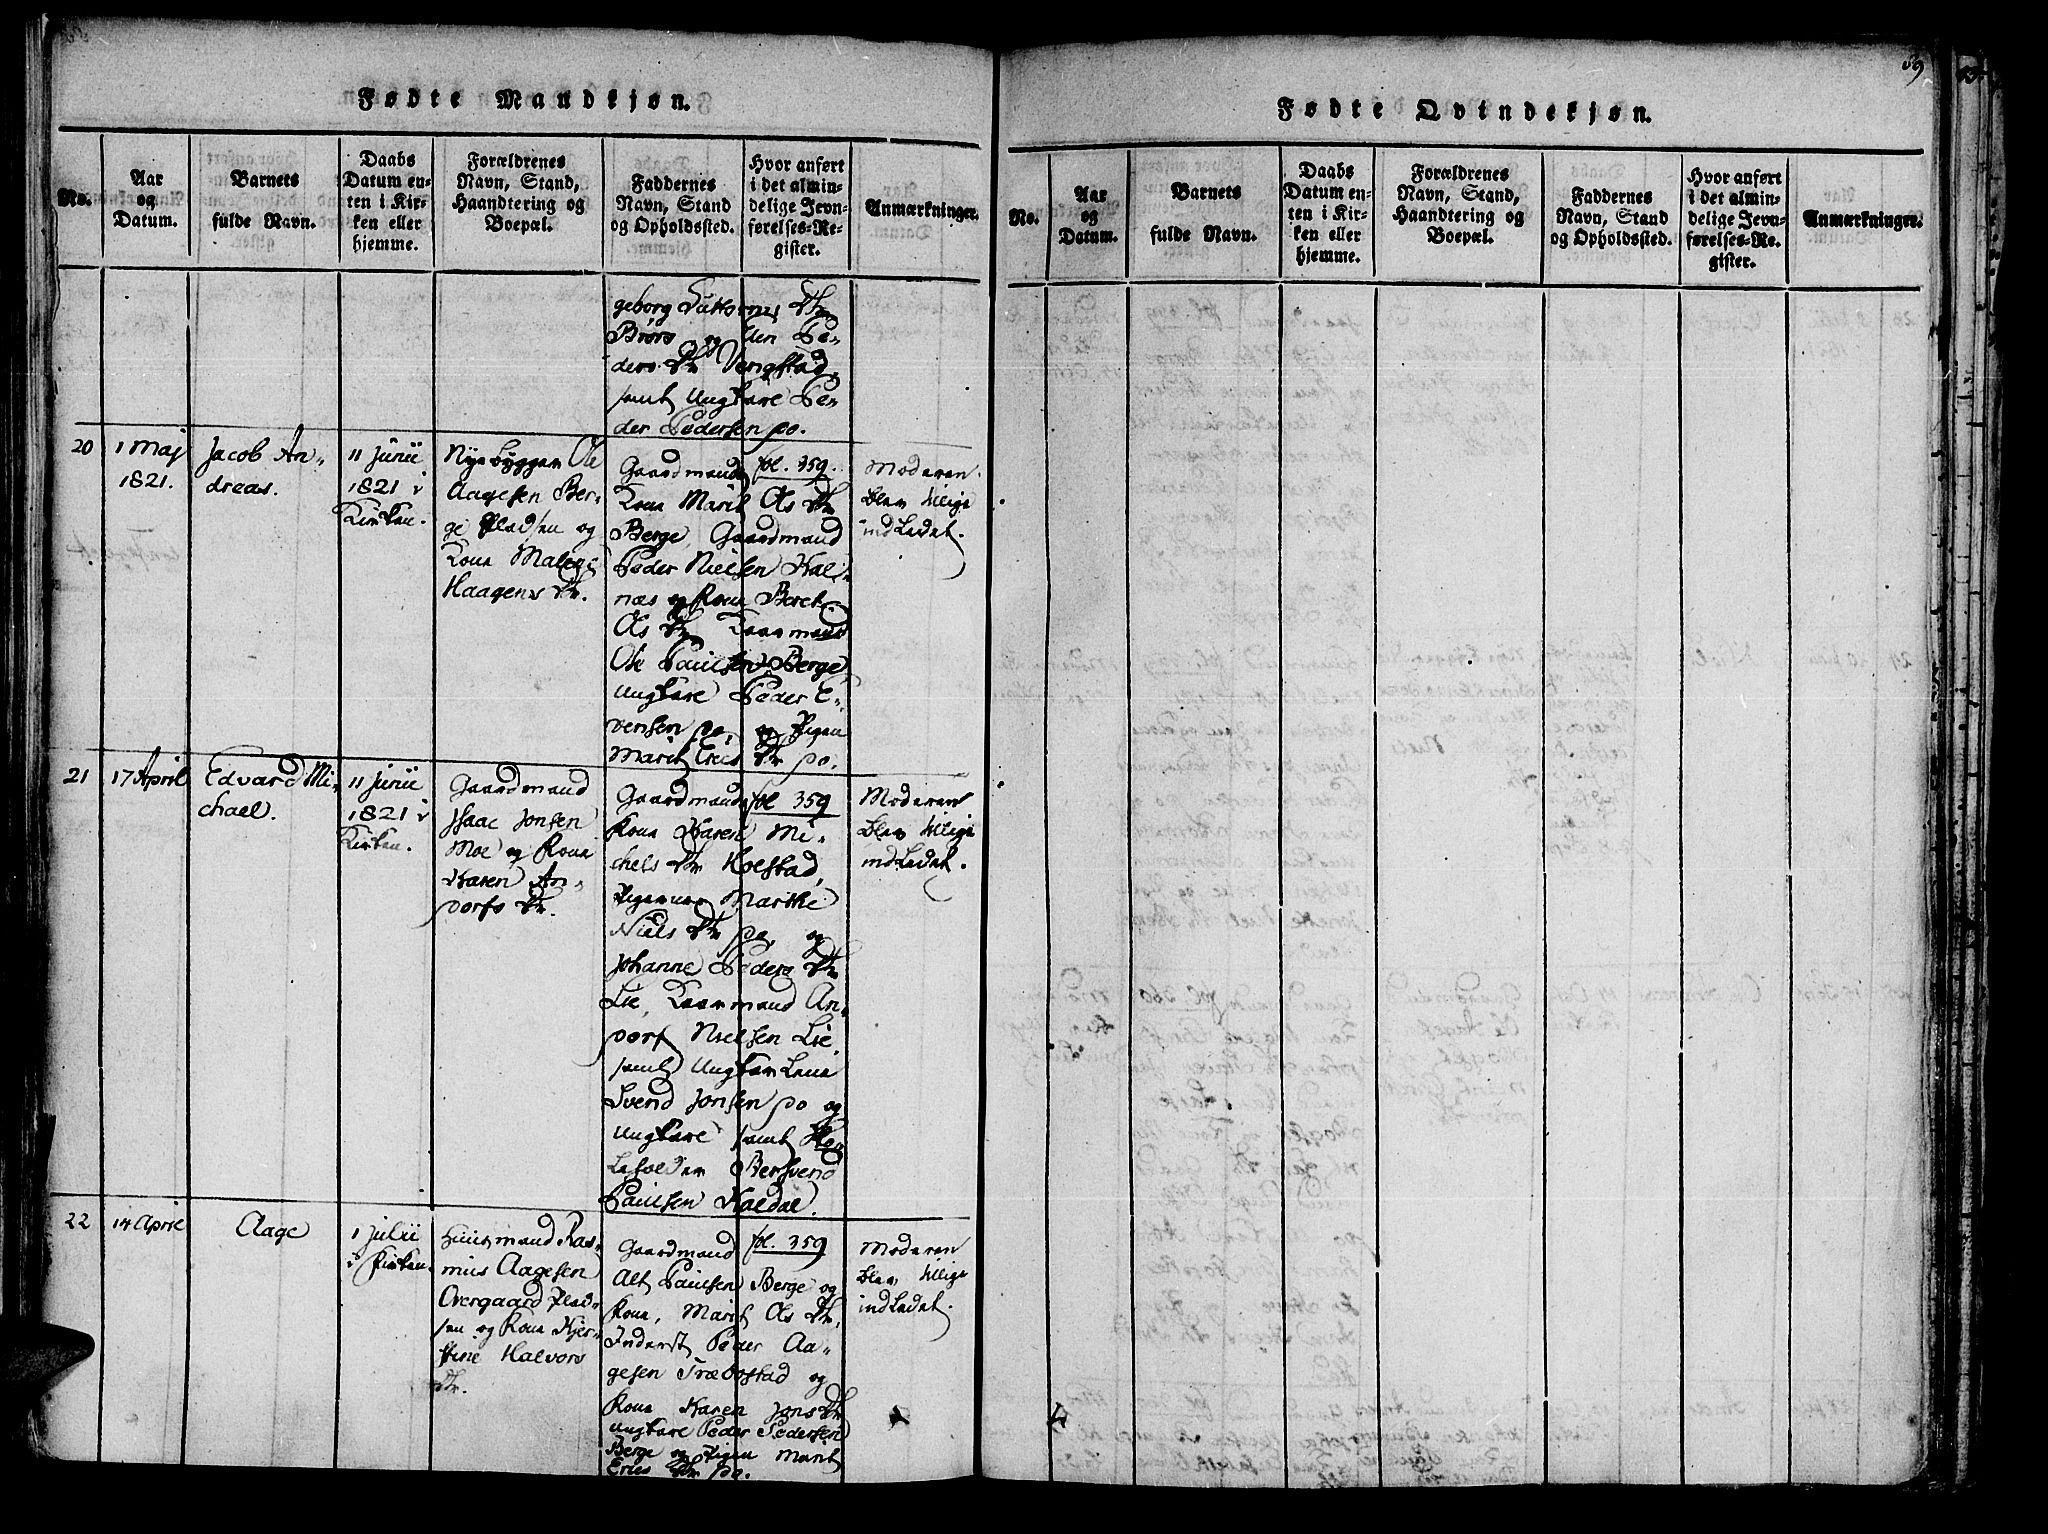 Fødte Mandkjøn.
No.
Aar
og
Datum.
Barnets
fulde Navn.
Daabs
Datum en-
ten i Kir-
ken eller
hjemme.
Forældrenes
Navn, Stand,
Haandtering og
Boepæl.
Faddernes
Navn, Stand
og Opholdssted.
Hvor anført
i det almin-
delige Jevn-
førelses-Re-
gister.
Anmærkninger.
geborg
Brørs og den Pe-
ders Dr
samt Ungkare Pe-
der Pedersen po.
20
1 Maj
1821.
Jacob An-
dreas.
11 Junii
1821 i
Kirken.
Nye bygger Ole
Aagesen Ber-
ge Pladsen og
Kona
Haagens Dr.
Gaardmands
Kona Marit Ols Dr
Berge, Gaardmand
Peder Nielsen Kal-
næs og Kona Beret
Ols Dr Kaarmand
Ole Paulsen Berge
Ungkare Peder E-
vensen po, og Pigen
Marit Eries Dr po.
fol. 359.
Moderen
blev tillige
indledet.
21
17 April
Edvard Mi-
chael.
11 Junii
1821 i
Kirken.
Gaardmand
Isaac Jonsen
Moe og Kona
Karen An-
dorfs Dr.
Gaardmands
Kona Karen Mi-
chels Dr Holstad,
Pigerne Marthe
Niels Dr po, og
Johanne Peders Dr
Lie, Kaarmand An-
dorf Nielsen Lie,
samt Ungkarlene
Svend Jonsen po og
Ungkare samt
Bersvend
Paulsen Kaldal.
fol 359
Moderen
blev tillige
indledet.
22
14 April
Aage
1 Julii
i Kirken.
Huusmand Ras-
mus Aagesen
Overgaard Plad-
sen og Kona Kjer-
stine Halvors
Dr.
Gaardmand
Alt Paulsen Berge og
Kona, Marit Ols Dr,
Inderst Peder Aa-
gesen Træbostad og
Kona Karen Jons Dr
Ungkare Peder Pedersen
Berge og Pigen Marit
Eries Dr po.
fol. 359
Moderen
blev tillige
indledet.
89
Fødte Qvindekjøn.
No.
Aar
og
Datum.
Barnets
fulde Navn.
Daabs
Datum en-
ten i Kir-
ken eller
hjemme.
Forældrenes
Navn, Stand,
Haandtering og
Boepæl.
Faddernes
Navn, Stand
og Opholdssted.
Hvor anført
i det almin-
delige Jevn-
førelses-Re-
gister.
Anmærkninger.